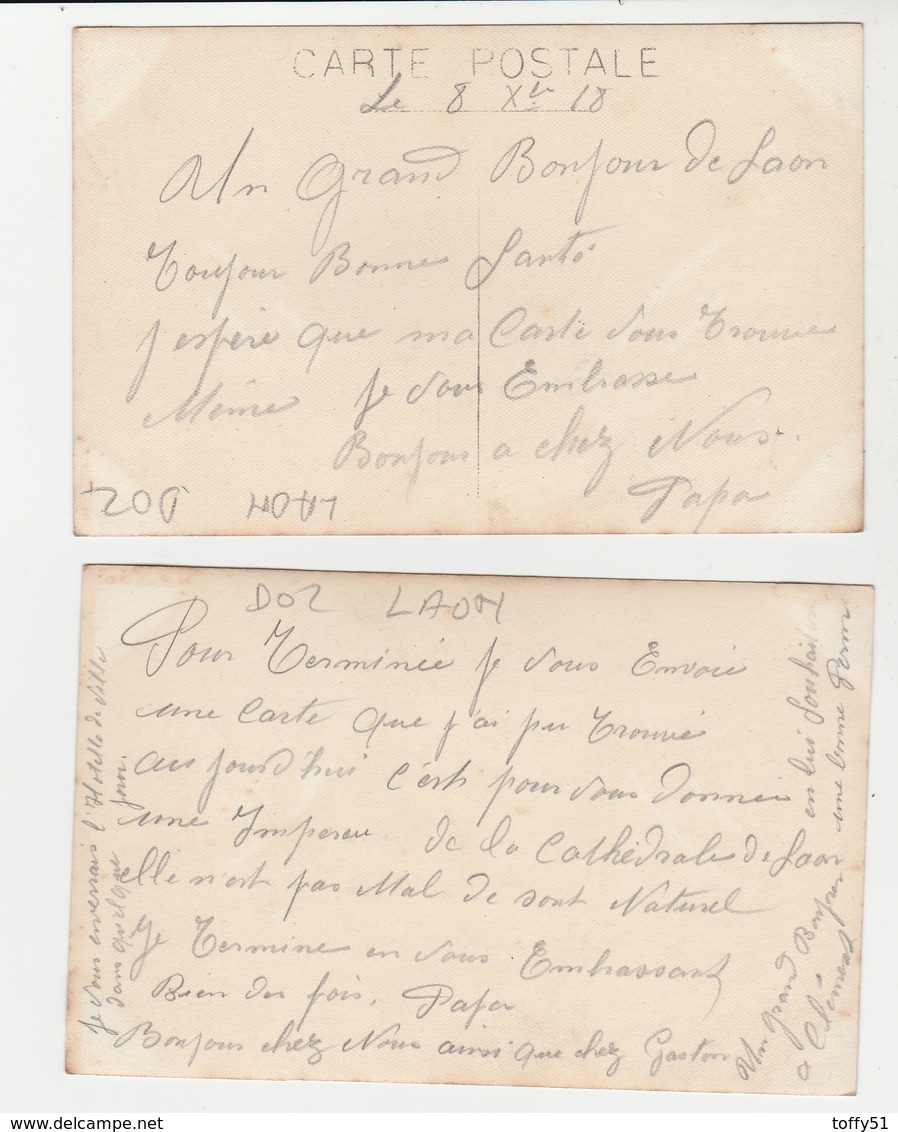 CARTE POSTALE
Le 8 Xbre 18
Un Grand Bonjour de Laon
Toujour Bonne Santé
j espère que ma Carte vous Trouve
Même je vous Embrasse
Bonjour a chez Nous.
Papa
LAON DOZ
DOZ LAON
Pour Terminée je vous Envoie
une Carte que j'ai pu Trouvé
aujourd'hui c'est pour vous donnée
une Impereu de la Cathédrale de Laon
elle n'est pas Mal de sont Naturel
Je Termine en vous Embrassant
Bien des fois. Papa
Bonjour chez Nous ainsi que chez Gaston
je vous enverrais l'Hotelle de Ville
dans quelque jour.
Un grand Bonjour en lui Souhaitan
a Clément une bonne Perm
toffy51